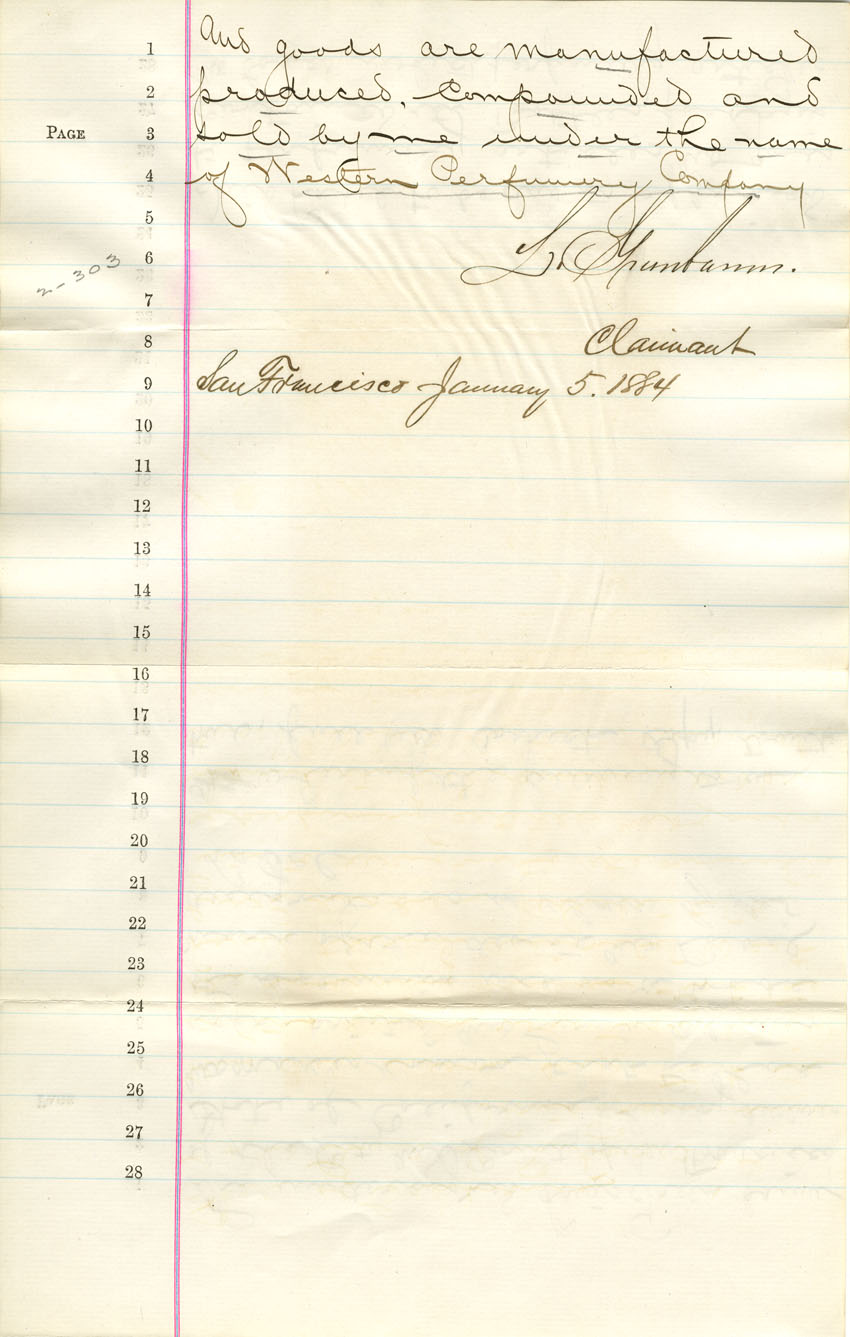 And goods are manufactured
produced, compounded and
PAGE
sold by me under the name
of Western Perfumery Company
L.
2-303
Claimant
San Francisco January 5. 1884
1
2
3
4
5
6
7
8
9
10
11
12
13
14
15
16
17
18
19
20
21
22
23
24
25
26
27
28